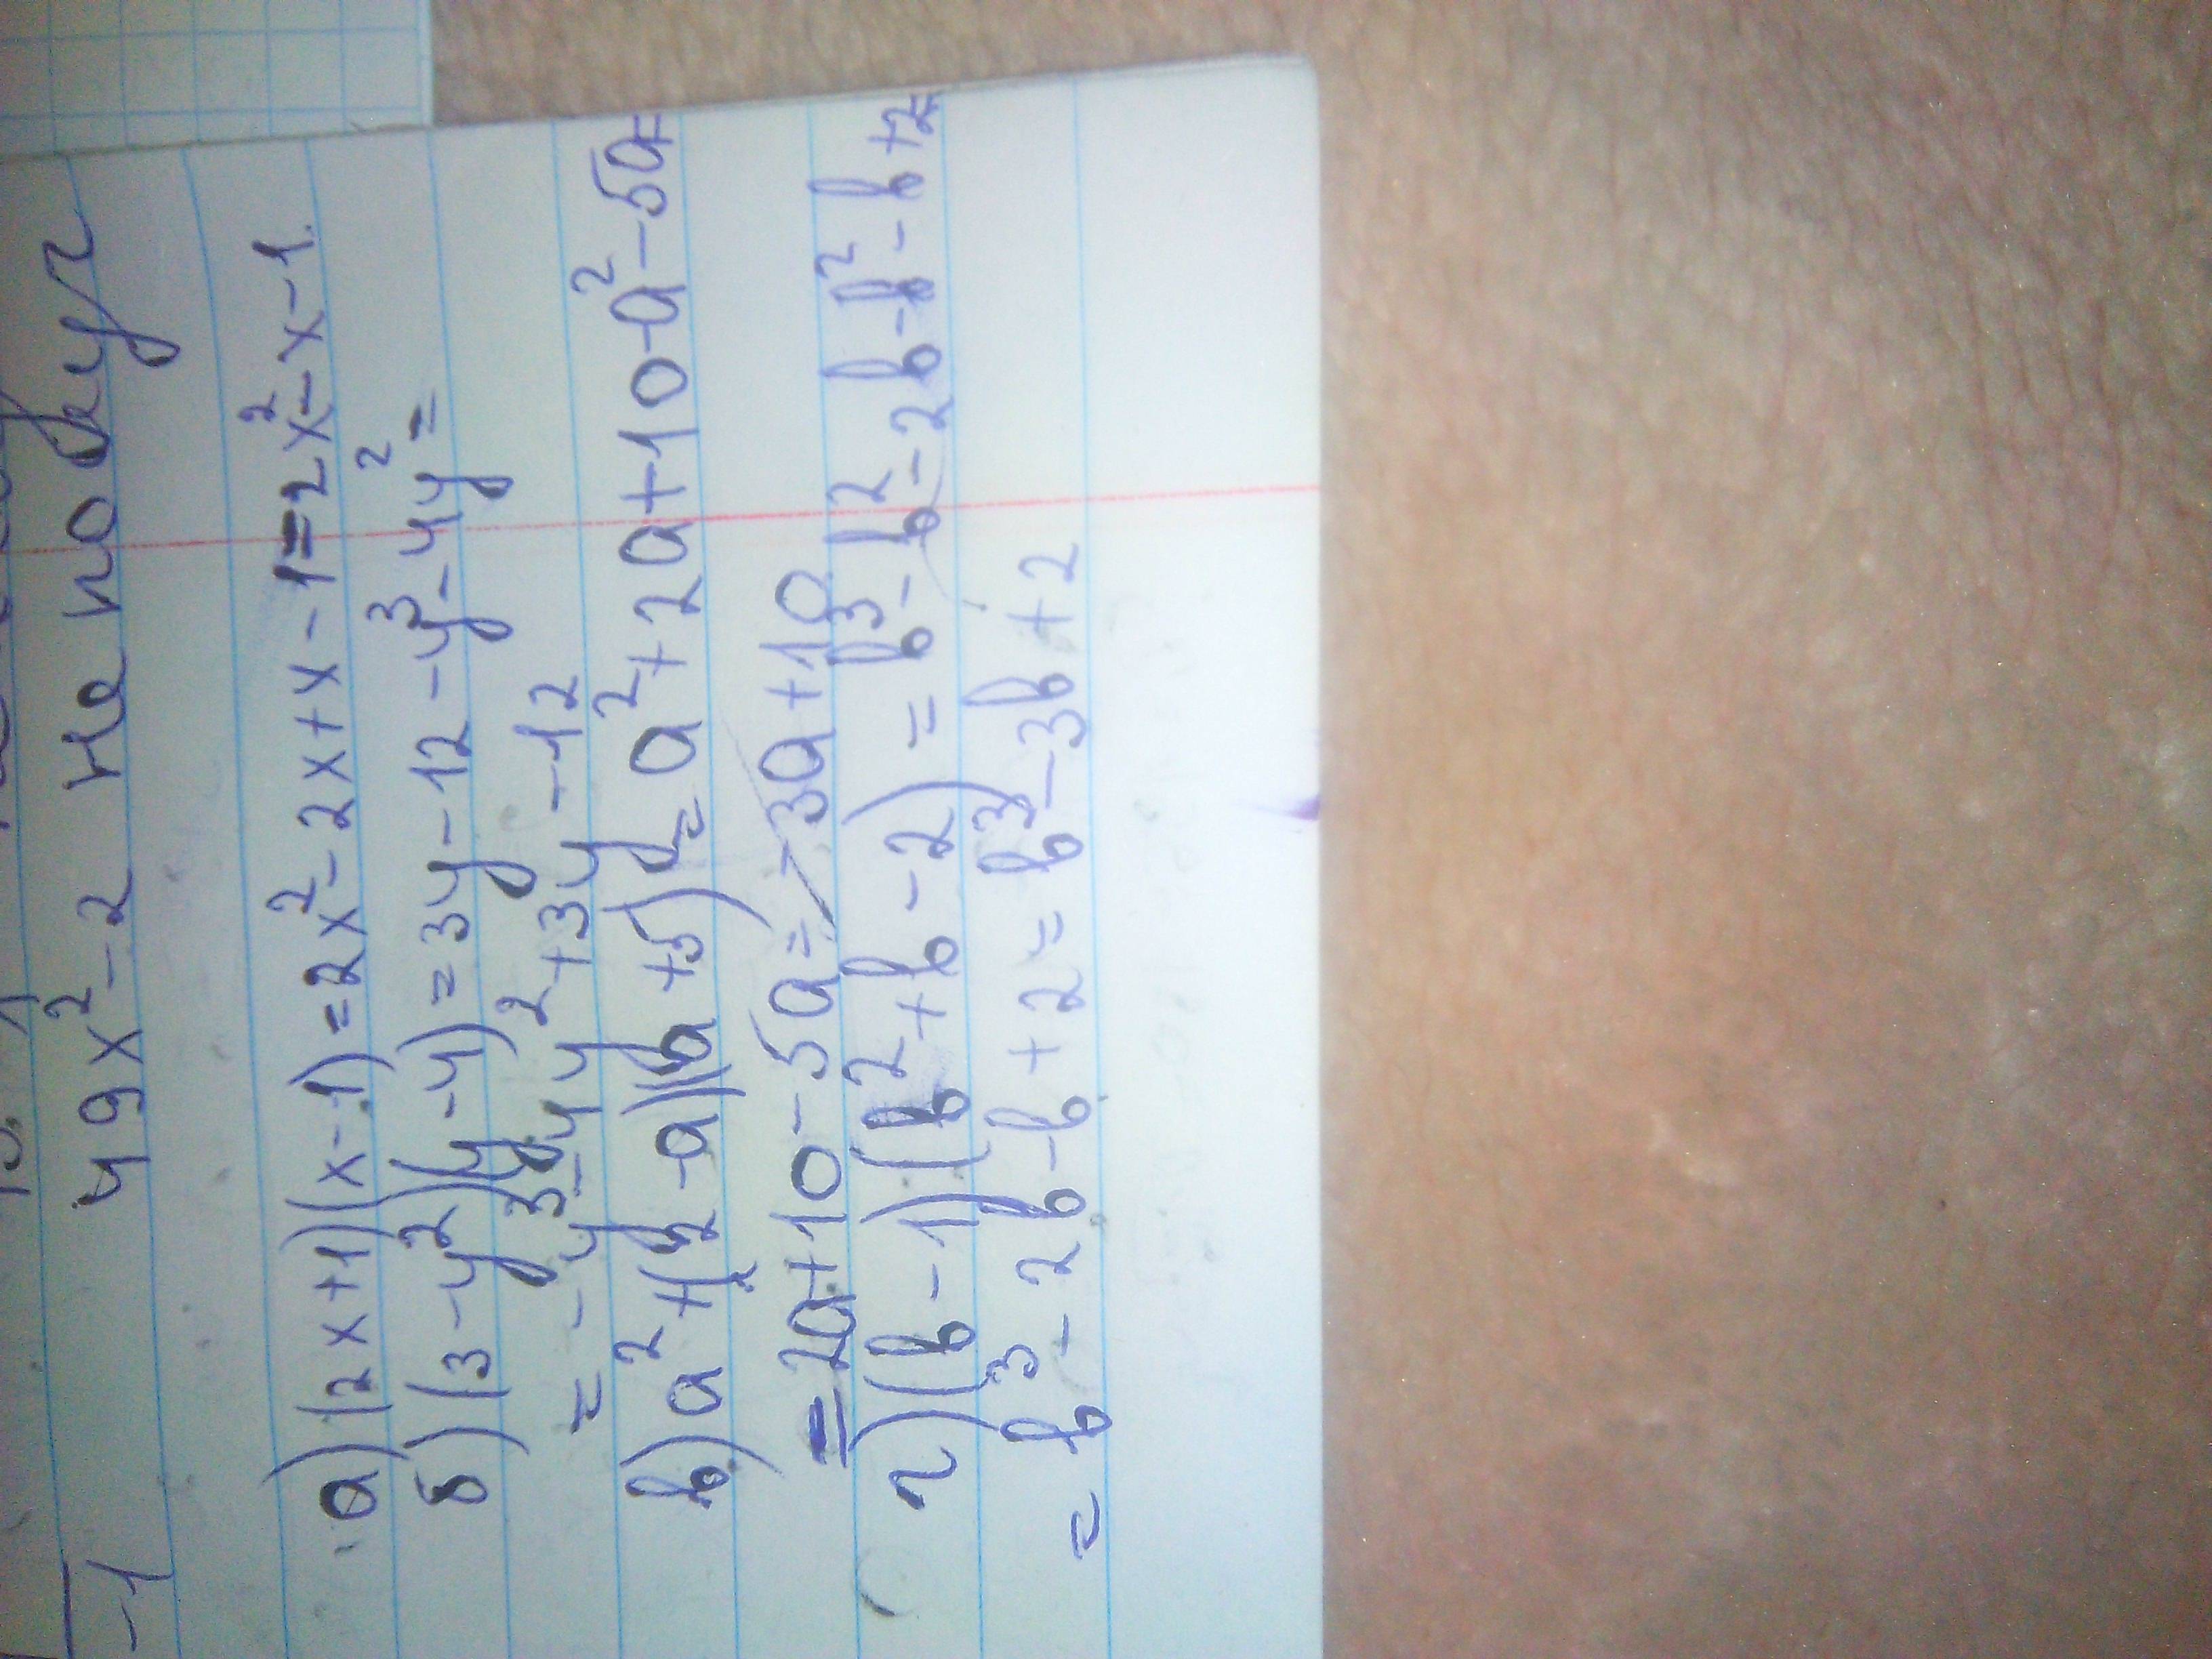 -1
49x² - 2 не подуг
а) (2x+1)(x-1) = 2x² - 2x + x - 1 = 2x² - x - 1.
б) (3-y²)(y-4) = 3y - 12 - y³ - 4y² =
= - y³ - 4y² + 3y - 12
в) a² + (2-a)(a+5) = a² + 2a + 10 - a² - 5a =
= 2a + 10 - 5a = - 3a + 10
г) (b-1)(b² + b - 2) = b³ - b² - 2b - b² - b + 2 =
= b³ - 2b - b + 2 = b³ - 3b + 2